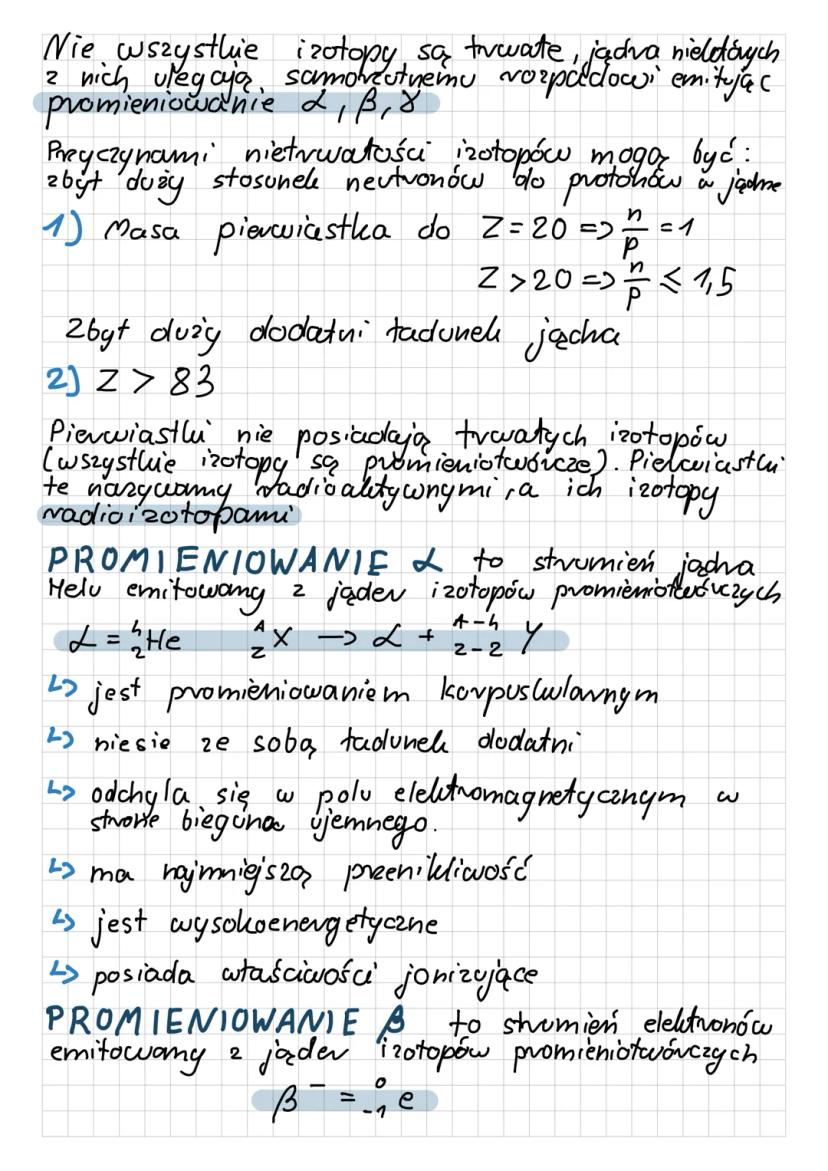 Nie wszystkie izotopy są trwałe, jądra niektórych
z nich ulegają samorzutnemu rozpadowi emitując
promieniowanie α, β, γ
Przyczynami nietrwałości izotopów mogą być:
zbyt duży stosunek neutronów do protonów w jądrze
1) Masa pierwiastka do Z = 20 => n/p = 1
Z > 20 => n/p ⩽ 1,5
Zbyt duży dodatni ładunek jądra
2) Z > 83
Pierwiastki nie posiadają trwałych izotopów
(wszystkie izotopy są promieniotwórcze). Pierwiastki
te nazywamy radioaktywnymi, a ich izotopy
radioizotopami
PROMIENIOWANIE α to strumień jądra
Helu emitowany z jąder izotopów promieniotwórczych
α = ⁴₂He ᴬ_Z X –> α + ᴬ⁻⁴_Z₋₂ Y
↳ jest promieniowaniem korpuskularnym
↳ niesie ze sobą ładunek dodatni
↳ odchyla się w polu elektromagnetycznym w
stronę bieguna ujemnego.
↳ ma najmniejszą przenikliwość
↳ jest wysokoenergetyczne
↳ posiada właściwości jonizujące
PROMIENIOWANIE β to strumień elektronów
emitowany z jąder izotopów promieniotwórczych
β⁻ = ⁰₋₁e